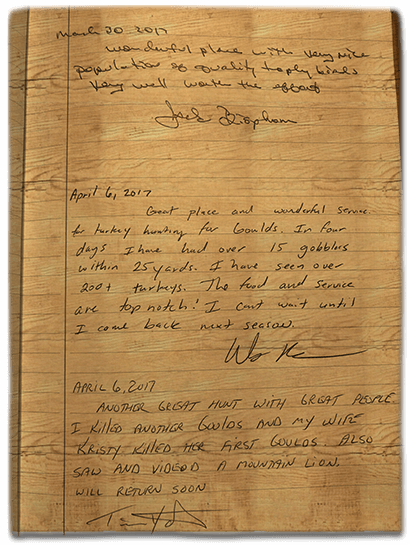 March 30 2017
wonderful place with very nice
population of quality trophy birds
very well worth the effort
Jack
April 6, 2017
Great place and wonderful service
for turkey hunting for Goulds. In four
days I have had over 15 gobblers
within 25 yards. I have seen over
200+ turkeys. The food and service
are top notch! I cant wait until
I come back next season.
APRIL 6, 2017
ANOTHER GREAT HUNT WITH GREAT PEOPLE
I KILLED ANOTHER GOULDS AND MY WIFE
KRISTY KILLED HER FIRST GOULDS. ALSO
SAW AND VIDEOD A MOUNTAIN LION.
WILL RETURN SOON